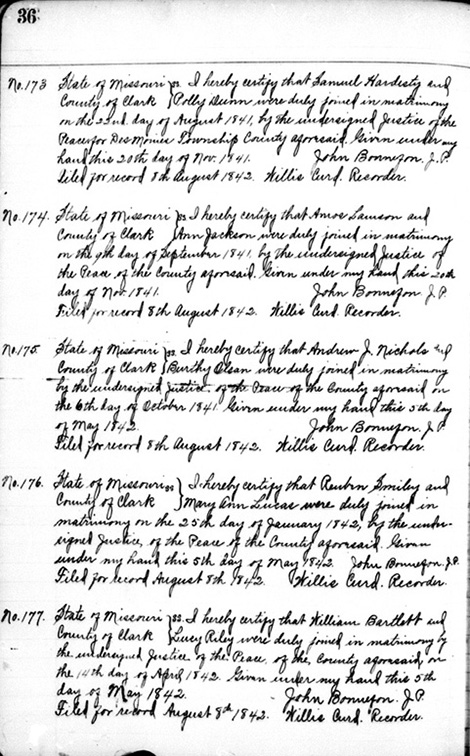 36
No. 173 State of Missouri ss. I hereby certify that Samuel Hardesty and
County of Clark Polly Dunn were duly joined in matrimony
on the 22nd day of August 1841, by the undersigned Justice of the
Peace for Des Moines Township County aforesaid. Given under my
hand this 20th day of Nov. 1841. John Bonnefon. J.P.
Filed for record 8th August 1842. Willis Curd. Recorder.
No. 174. State of Missouri ss I hereby certify that Amos Lawson and
County of Clark Ann Jackson were duly joined in matrimony
on the 9th day of September 1841, by the undersigned Justice of
the Peace of the County aforesaid. Given under my hand, this 20th
day of Nov. 1841. John Bonnefon. J.P.
Filed for record 8th August 1842. Willis Curd. Recorder.
No. 175. State of Missouri ss. I hereby certify that Andrew J. Nichols and
County of Clark Olsan were duly joined in matrimony
by the undersigned Justice of the Peace of the County aforesaid on
the 6th day of October 1841. Given under my hand this 5th day
of May 1842. John Bonnefon. J.P.
Filed for record 8th August 1842. Willis Curd. Recorder.
No. 176. State of Missouri ss I hereby certify that Reubin Smiley and
County of Clark Mary Ann Lucas were duly joined in
matrimony on the 25th day of January 1842, by the under-
signed Justice, of the Peace of the County aforesaid. Given
under my hand this 5th day of May 1842. John Bonnefon. J.P.
Filed for record August 8th 1842. Willis Curd. Recorder.
No. 177. State of Missouri ss. I hereby certify that William Bartlett and
County of Clark Lucy Riley were duly joined in matrimony by
the undersigned Justice of the Peace, of the County aforesaid, on
the 14th day of April 1842. Given under my hand this 5th
day of May 1842. John Bonnefon. J.P.
Filed for record August 8th 1842. Willis Curd. Recorder.